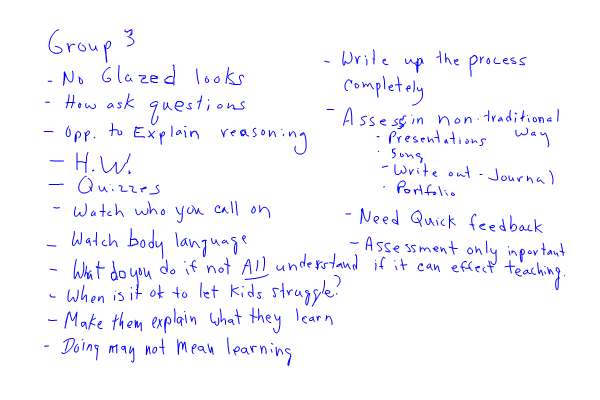 Group 3
- No Glazed looks
- How ask questions
- Opp. to Explain reasoning
- H.W.
- Quizzes
- Watch who you call on
- Watch body language
- What do you do if not All understand
- When is it ok to let kids struggle?
- Make them explain what they learn
- Doing may not mean learning
- Write up the process
completely
- Assess in non-traditional
way
• Presentations
• Song
- Write out - Journal
• Portfolio
- Need Quick feedback
- Assessment only inportant
if it can effect teaching.